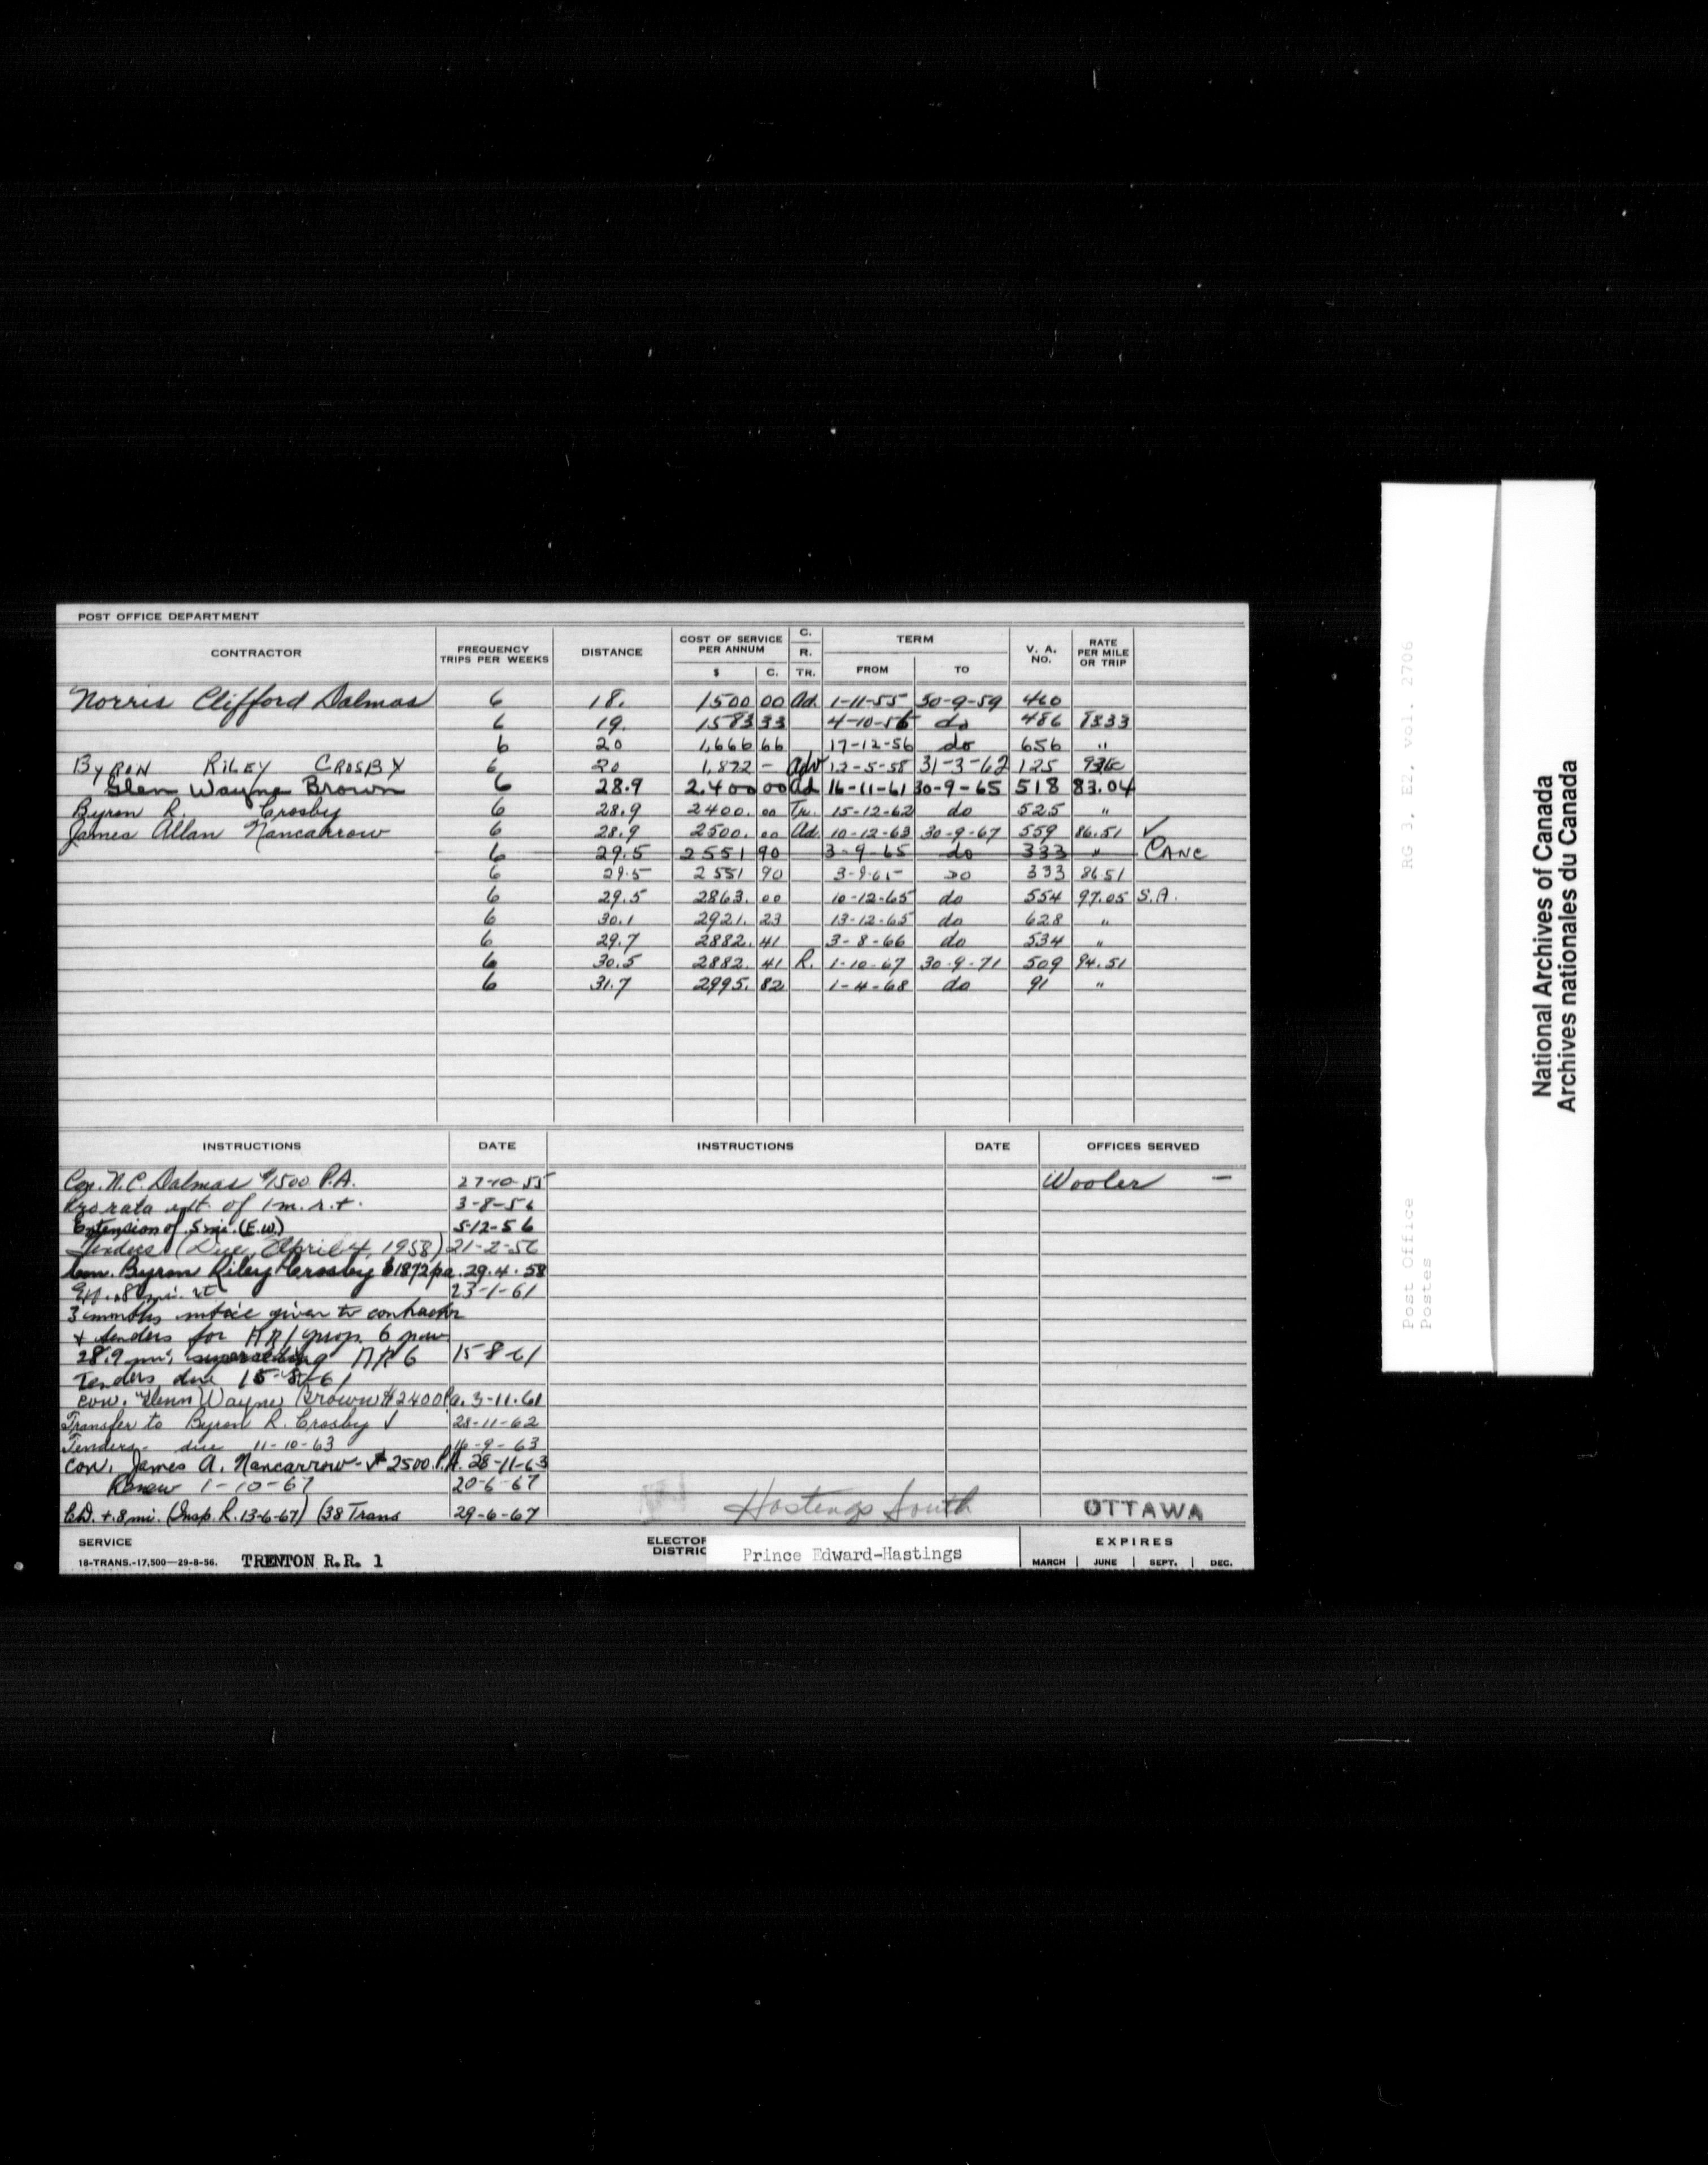 POST OFFICE DEPARTMENT
CONTRACTOR FREQUENCY TRIPS PER WEEKS DISTANCE COST OF SERVICE PER ANNUM $ C. C. R. TR. TERM FROM TO V. A. NO. RATE PER MILE OR TRIP
Norris Clifford Dalmas 6 18. 1500 00 Ad. 1-11-55 30-9-59 460
6 19. 1583 33 4-10-56 do 486 8333
6 20 1,666 66 17-12-56 do 656 "
BYRON RILEY CROSBY 6 20 1,872 - Adv 12-5-58 31-3-62 125 936
Glen Wayne Brown 6 28.9 2,400 00 Ad 16-11-61 30-9-65 518 83.04
Byron R. Crosby 6 28.9 2400. 00 Tr. 15-12-62 do 525 "
James Allan Nancarrow 6 28.9 2500. 00 Ad. 10-12-63 30-9-67 559 86.51 ✓
6 29.5 2551 90 3-9-65 do 333 " CANC
6 29.5 2551 90 3-9-65 do 333 8651
6 29.5 2863. 00 10-12-65 do 554 97.05 S.A.
6 30.1 2921. 23 13-12-65 do 628 "
6 29.7 2882. 41 3-8-66 do 534 "
6 30.5 2882. 41 R. 1-10-67 30-9-71 509 94.51
6 31.7 2995. 82 1-4-68 do 91 "
INSTRUCTIONS DATE INSTRUCTIONS DATE OFFICES SERVED
Con. N.C. Dalmas $1500 P.A. 27-10-55 Wooler -
Pro rata adt. of 1 m. r.t. 3-8-56
Extension of .5 mi. (E.W.) 5-12-56
Tenders (Due April 4, 1958) 21-2-56
Con. Byron Riley Crosby $1872 pa. 29.4.58
.8 mi. rt 23-1-61
3 months notice given to contractor
+ tenders for RR 1 prop. 6 pw
28.9 mi. superseding RR 6 15-8-61
Tenders due 15-8-61
Con. Glenn Wayne Brown $2400 Pa. 3-11-61
Transfer to Byron R. Crosby ✓ 28-11-62
Tenders - due 11-10-63 16-9-63
Con. James A. Nancarrow - $2500. P.A. 28-11-63
Renew 1-10-67 20-6-67
+.8 mi. (Insp. R. 13-6-67) (38 Trans 29-6-67
Hastings South
OTTAWA
SERVICE
18-TRANS.-17,500—29-8-56. TRENTON R.R. 1
ELECTOR DISTRIC Prince Edward-Hastings
EXPIRES
MARCH JUNE SEPT. DEC.
RG 3, E2, vol. 2706
Post Office
Postes
National Archives of Canada
Archives nationales du Canada